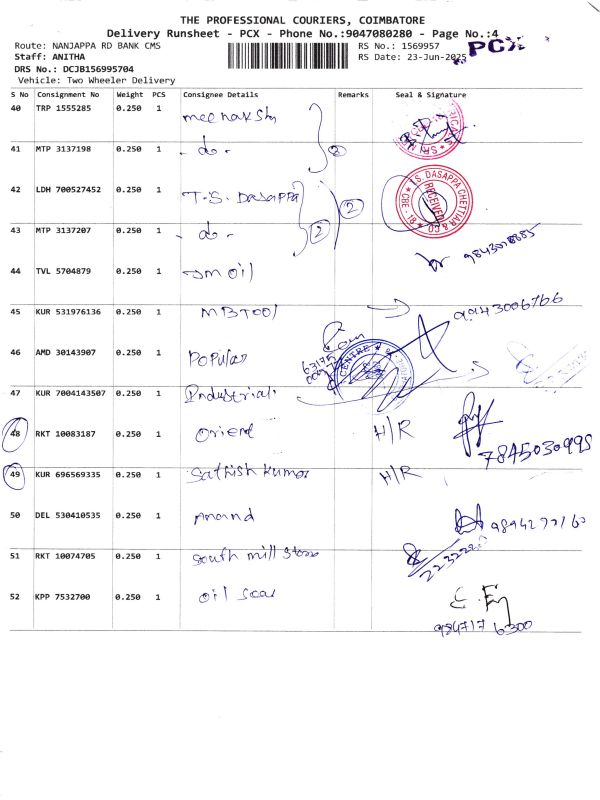 THE PROFESSIONAL COURIERS, COIMBATORE
Delivery Runsheet - PCX - Phone No.:9047080280 - Page No.:4
Route: NANJAPPA RD BANK CMS RS No.: 1569957 PCX
Staff: ANITHA RS Date: 23-Jun-2025
DRS No.: DCJB156995704
Vehicle: Two Wheeler Delivery
S No Consignment No Weight PCS Consignee Details Remarks Seal & Signature
40 TRP 1555285 0.250 1 meenakshi
41 MTP 3137198 0.250 1 - do - 2
42 LDH 700527452 0.250 1 T.S. DASAPPA 2 T.S. DASAPPA CHETTIAR & CO RECEIVED CBE - 18
43 MTP 3137207 0.250 1 - do - 2
44 TVL 5704879 0.250 1 JM oil
45 KUR 531976136 0.250 1 MBTOOl 9943006766
46 AMD 30143907 0.250 1 Popular CENTRE
47 KUR 7004143507 0.250 1 Industrial
48 RKT 10083187 0.250 1 Orient H/R 7845030995
49 KUR 696569335 0.250 1 Sathish kumar H/R
50 DEL 530410535 0.250 1 Anand
51 RKT 10074705 0.250 1 South mill store
52 KPP 7532700 0.250 1 Oil Seal
984717 6300